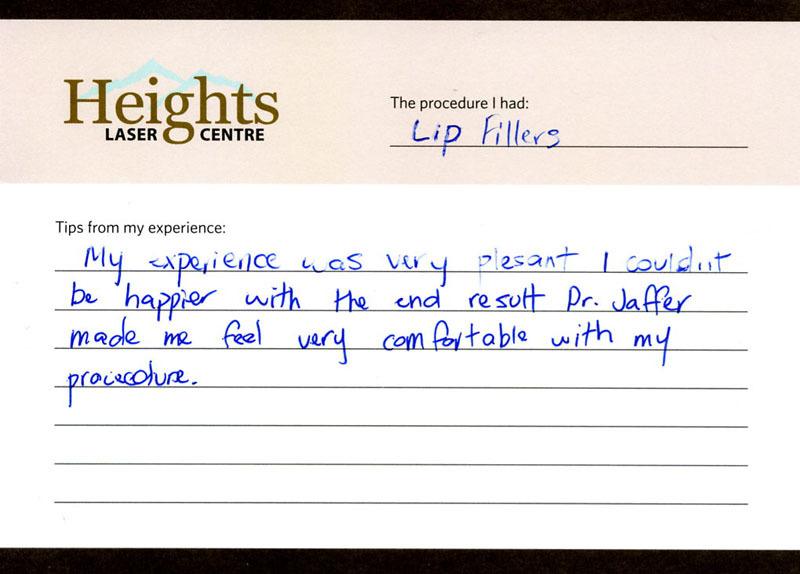 Heights
LASER CENTRE
The procedure I had:
Lip Fillers
Tips from my experience:
My experience was very plesant I couldn't
be happier with the end result Dr. Jaffer
made me feel very comfortable with my
procecdure.